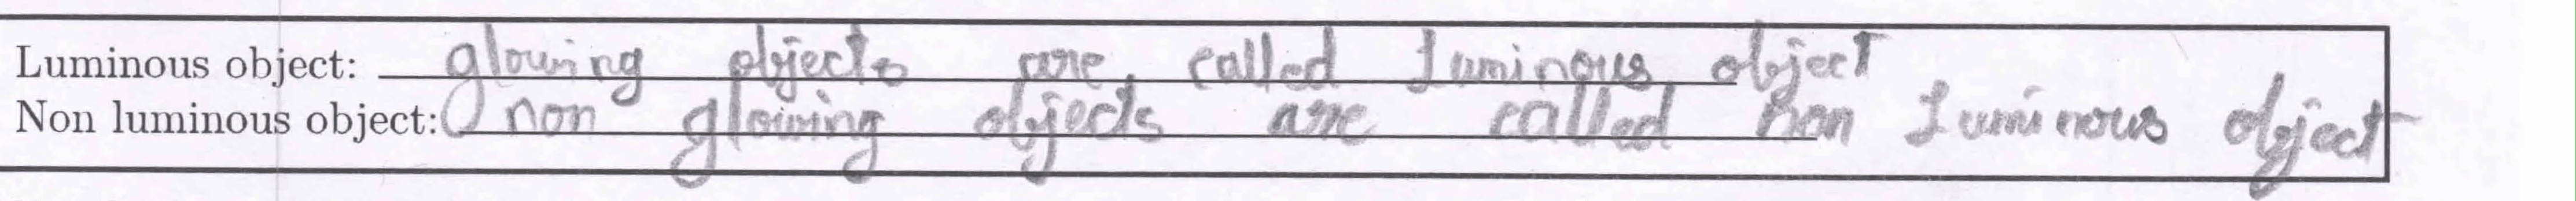 Luminous object: glowing objects are called luminous object
Non luminous object: non glowing objects are called non luminous object